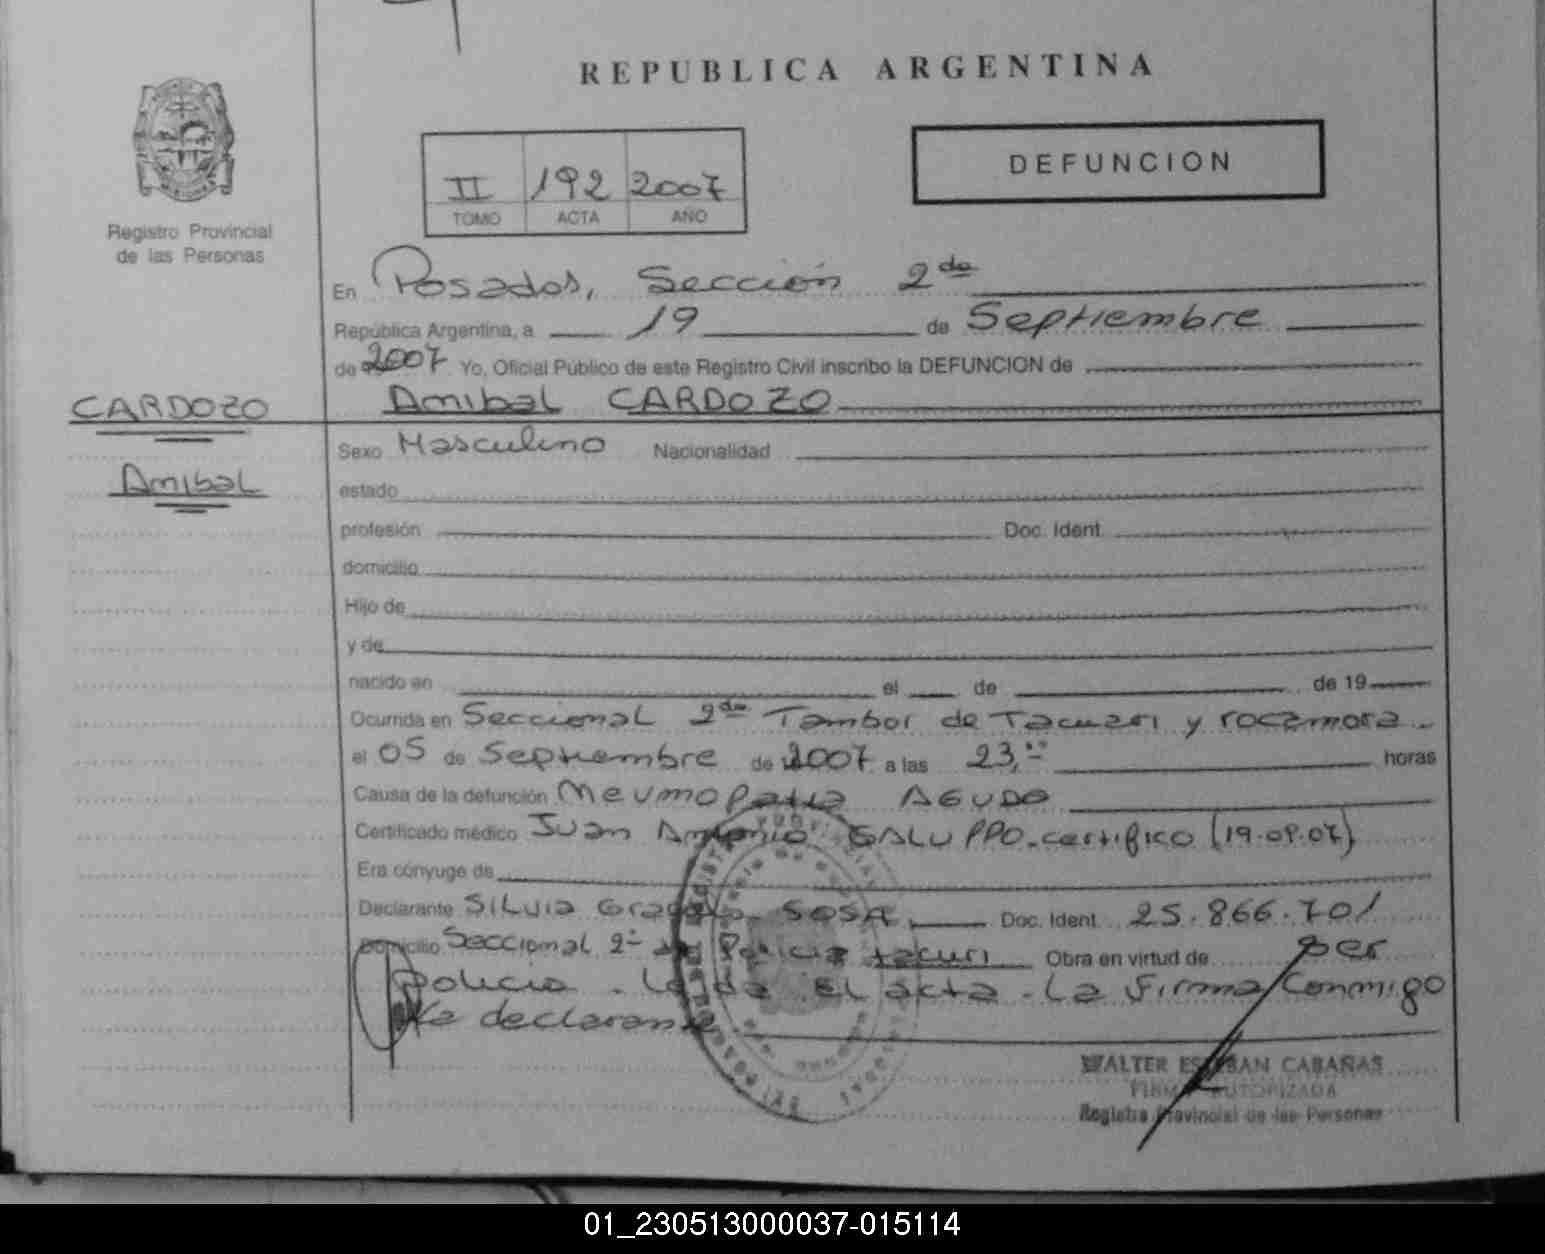 REPUBLICA ARGENTINA
DEFUNCION
II 192 2007
TOMO ACTA AÑO
Registro Provincial
de las Personas
En Posadas, Sección 2da
República Argentina, a 19 de Septiembre
de 2007 Yo, Oficial Público de este Registro Civil inscribo la DEFUNCION de
CARDOZO
Anibal
Anibal CARDOZO
Sexo Masculino Nacionalidad
estado
profesión Doc. Ident.
domicilio
Hijo de
y de
nacido en el de de 19
Ocurrida en Seccional 2da Tambor de Tacuari y rocamora
el 05 de Septiembre de 2007 a las 23,00 horas
Causa de la defunción Neumopatia AGUDA
Certificado médico Juan Antonio GALUPPO. certifico (19.09.07)
Era cónyuge de
Declarante SILVIA Graciela SOSA Doc. Ident. 25.866.701
Domicilio Seccional 2º de Policia tacuri Obra en virtud de ser
policia. Leida El acta. La firma Conmigo
la declarante
WALTER ESTEBAN CABAÑAS
FIRMA AUTORIZADA
Registro Provincial de las Personas
01_230513000037-015114